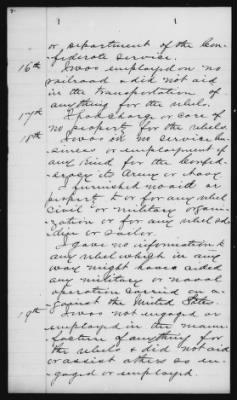 or department of the Con-
federate service.
16th I was employed on no
railroad & did not aid
in the transportation of
anything for the rebels.
17th I took charge or care of
no property for the rebels
18th I was in no service, bu-
siness or employment of
any kind for the Confed-
eracy its Army or Navy
I furnished no aid or
property to or for any rebel
civil or military organi-
zation or for any rebel sol-
dier or sailor.
I gave no information to
any rebel which in any
way might have aided
any military or naval
operation carried on a-
gainst the United States.
19th I was not engaged or
employed in the manu-
facture of anything for
the rebels & did not aid
or assist others so en-
gaged or employed.